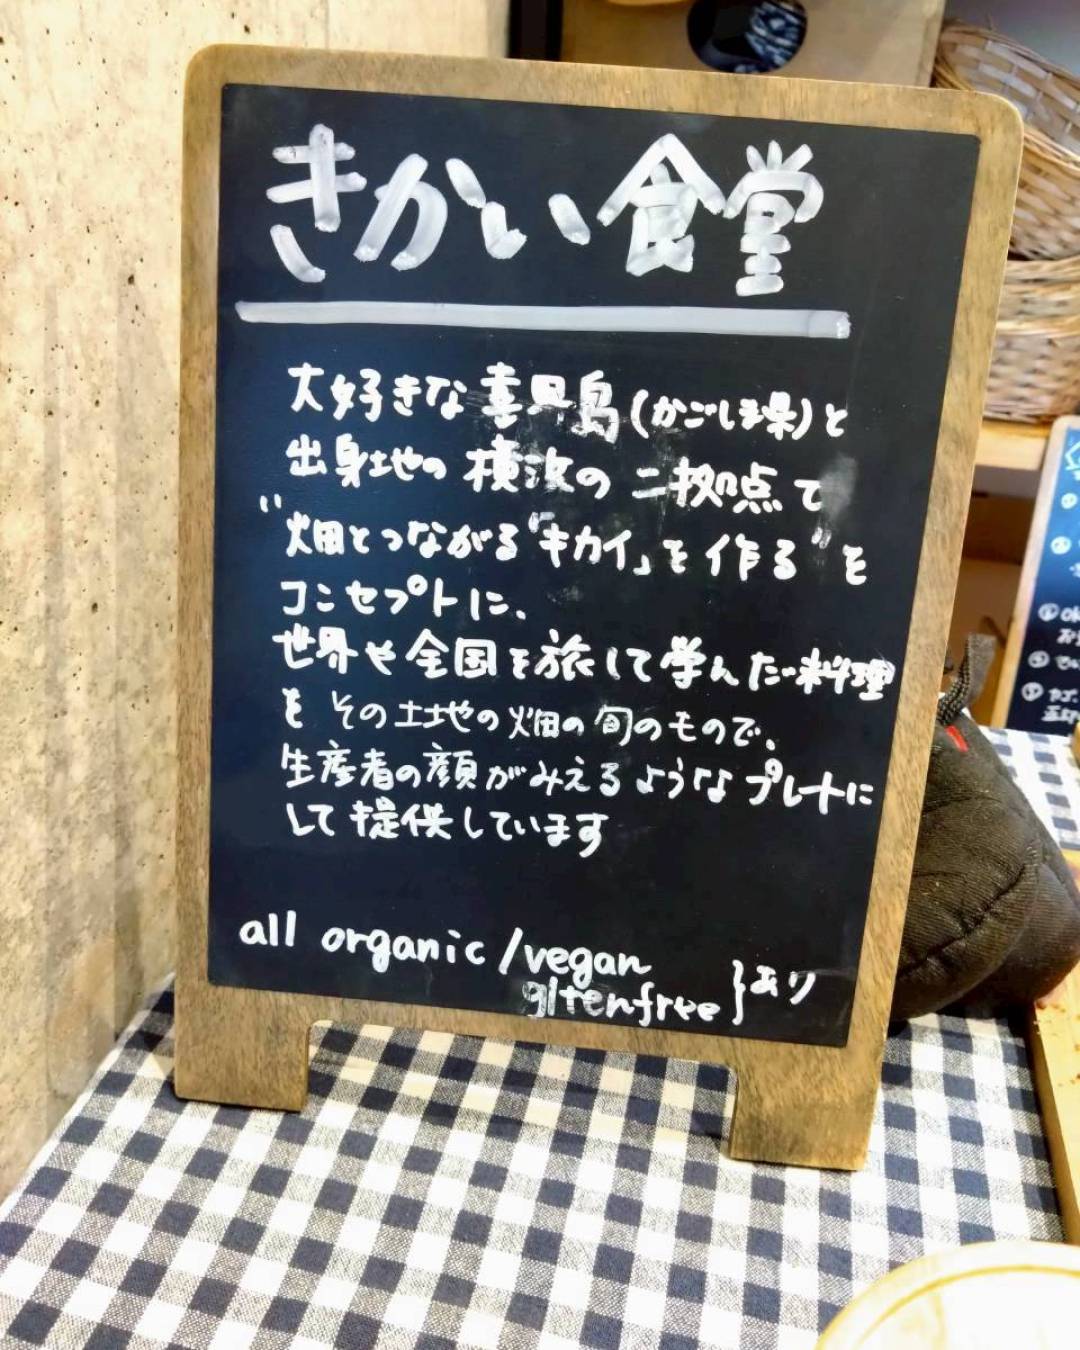 きかい食堂
大好きな喜界島(かごしま県)と
出身地の横浜の二拠点で
"畑とつながる「キカイ」を作る"を
コンセプトに、
世界や全国を旅して学んだ料理
を その土地の畑の旬のもので、
生産者の顔がみえるようなプレートに
して提供しています
all organic/vegan
gltenfree}あり